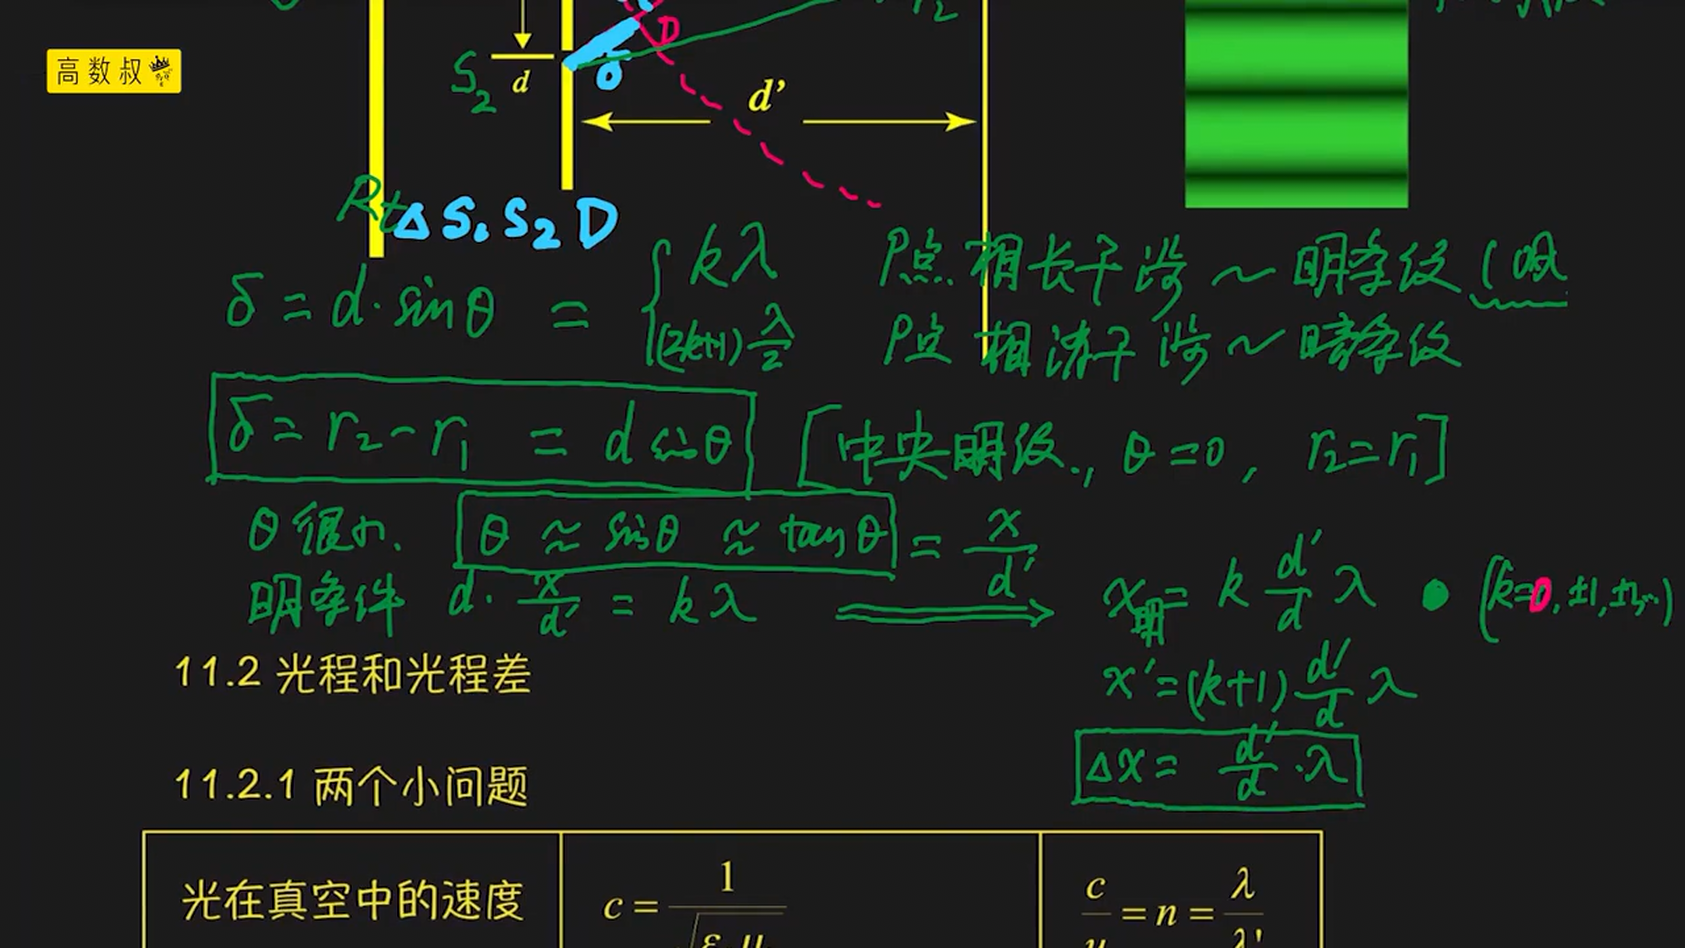 高数叔
S₂
d
δ
D
r₂
d'
Rt△S₁S₂D
δ = d·sinθ = { kλ P点相长干涉 ~ 明条纹
(2k+1)λ/2 P点相消干涉 ~ 暗条纹
δ = r₂ - r₁ = d sinθ [中央明纹., θ=0, r₂=r₁]
θ很小、 θ ≈ sinθ ≈ tanθ = x/d'
明条件 d·x/d' = kλ ⟹ x明 = k d'/d λ (k=0, ±1, ±2,…)
x' = (k+1) d'/d λ
Δx = d'/d ·λ
11.2 光程和光程差
11.2.1 两个小问题
光在真空中的速度 c = 1/√ε μ c/u = n = λ/λ'